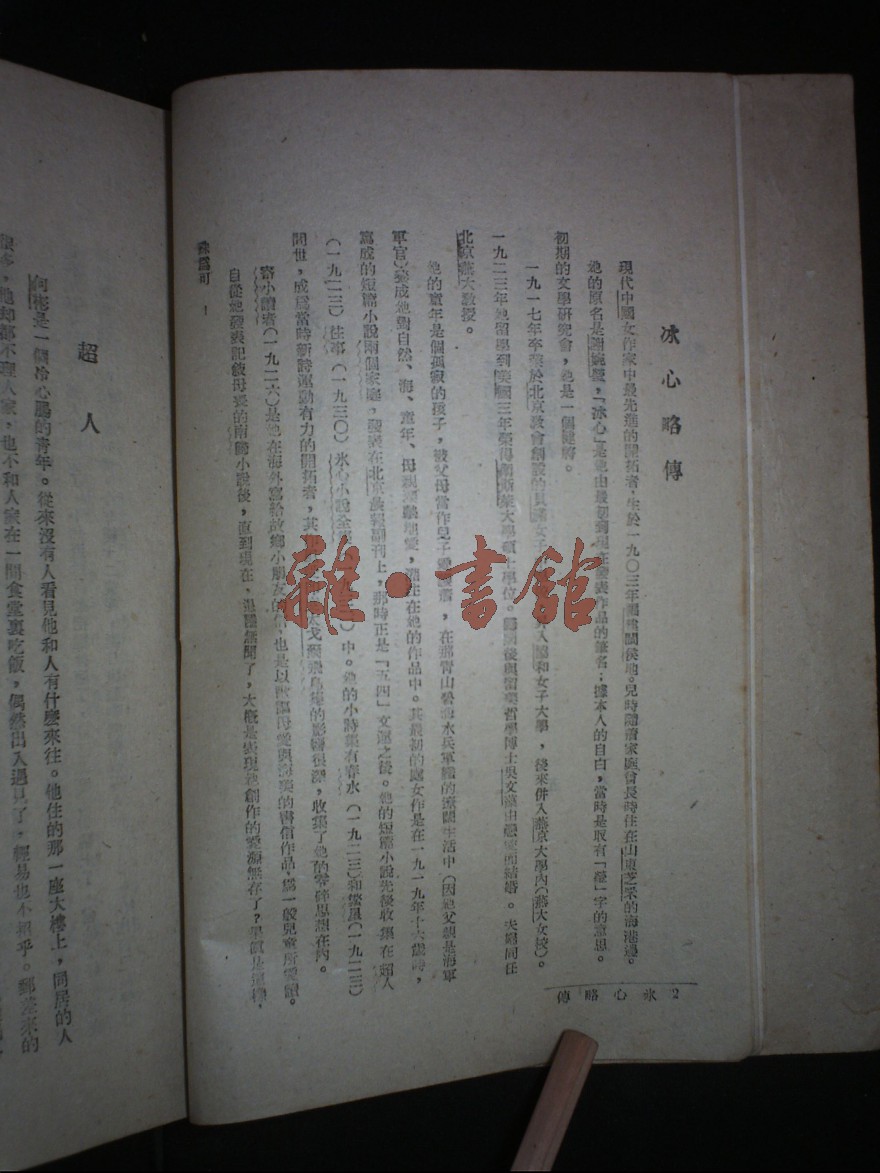 冰心略傳
現代中國女作家中最先進的開拓者,生於一九〇三年福建閩侯地。兒時隨著家庭曾長時住在山東芝罘的海港邊。
她的原名是謝婉瑩,「冰心」是她由最初到現在發表作品的筆名;據本人的自白,當時是取有「瑩」字的意思。
初期的文學研究會,她是一個健將。
一九一七年卒業於北京教會創設的貝滿女子 入協和女子大學,後來併入燕京大學內(燕大女校)。
一九二三年她留學到美國三年榮得 大學碩士學位。歸國後與留美哲學博士吳文藻由戀愛而結婚。夫婦同任
北京燕大教授。
她的童年是個孤寂的孩子,被父母當作兒子 ,在那青山碧海水兵軍艦的遼闊生活中(因她父親是海軍
軍官)養成她對自然、海、童年、母親 愛,潛注在她的作品中。其最初的處女作是在一九一九年十六歲時,
寫成的短篇小說兩個家庭,發表在北京晨報副刊上,那時正是「五四」文運之後。她的短篇小說先後收集在超人
(一九二三)往事(一九三〇)冰心小說全 )中。她的小詩集有春水(一九二三)和繁星(一九二三)
問世,成爲當時新詩運動有力的開拓者,其 太戈爾飛鳥集的影響很深,收集了她的零碎思想在內。
寄小讀者(一九二六)是她在海外寫給故鄉小朋友的信,也是以歌謳母愛與海美的書信作品,爲一般兒童所愛頌。
自從她發表記敘母喪的南歸小說後,直到現在,退隱無聞了,大概是表現她創作的愛源無存了?果真是這樣,
殊爲可 !
2 冰心略傳
雜·書館
超人
何彬是一個冷心腸的青年。從來沒有人看見他和人有什麼來往。他住的那一座大樓上,同居的人
很多,他却都不理人家,也不和人家在一間食堂裏吃飯,偶然出入遇見了,輕易也不招乎。郵差來的